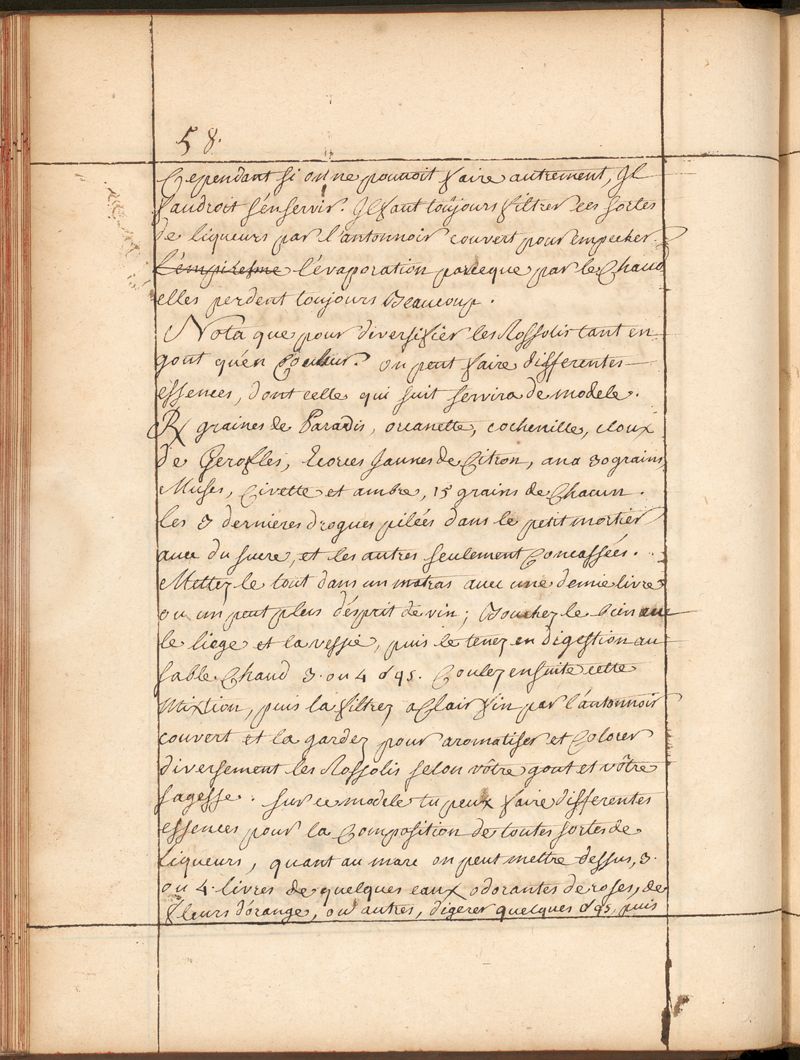 58.
Cependant si on ne pouuoit faire autrement, Jl
faudroit s'én servir. Jl faut toûjours filtrer ces sortes
de liqueurs par l'antonnoir couvert pour empecher
l'évaporation parceque par le Chaud
elles perdent toujours Beaucoup.
Nota que pour diversifiér les Rossolis tant en
gout qu'én Couleur. on peut faire differentes
essences, dont celle qui suit servira de modele.
℞ graines de Paradis, orcanette, cochenille, cloux
de Gerofles, Ecorces Jaunes de Citron, ana 30 grains,
Musc, Civette et ambre, 15 grains de Chacun.
les 3 dernieres drogues pilées dans le petit mortier
auec du sucre, et les autres seulement Concassées.
Mettez le tout dans un matras auec une demie livre
ou un peut plus d'ésprit de vin; Bouchez le bien auec
le liege et la vessie, puis le tenez en digestion au
sable Chaud 3. ou 4 d'qs. Coulez ensuite cette
Mixtion, puis la filtrez a Clair fin par l'ántonnoir
couvert et la gardez pour aromatiser et Colorer
diversement les Rossolis selon vôtre gout et vôtre
sagesse. sur ce modele tu peux faire differentes
essences pour la Composition de toutes sortes de
Liqueurs, quant au marc on peut mettre dessus, 3.
ou 4. livres de quelques eaux odorantes de roses, de
fleurs d'órange, ou autres, digerer quelques d'qs, puis